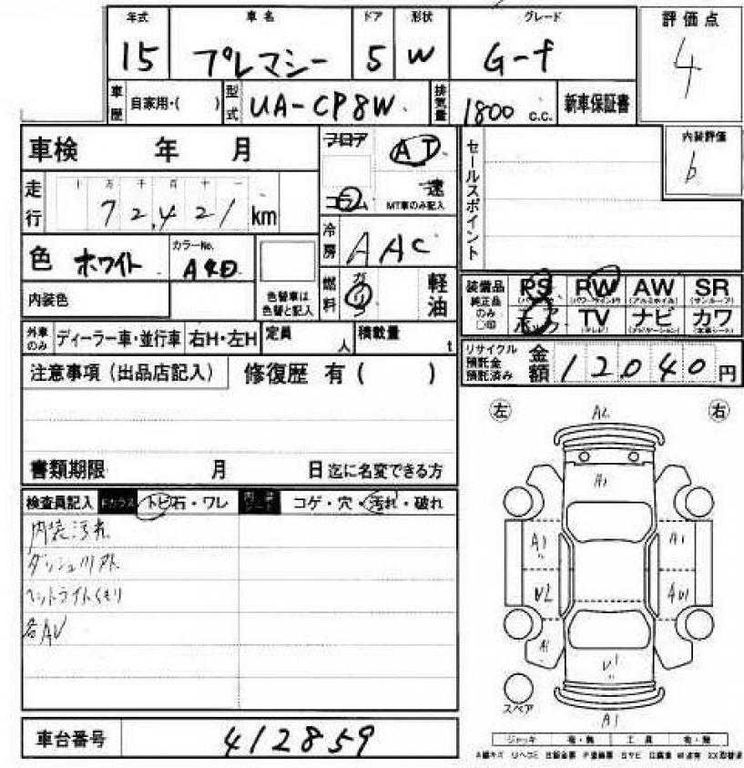 年式 車名 ドア 形状 グレード 評価点
15 プレマシー 5 W G-f 4
車歴 自家用・( ) 型式 UA-CP8W 排気量 1800 C.C. 新車保証書
車検 年 月 フロア AT セールスポイント 内装評価
コラム 速 b
MT車のみ記入
走行 十 万 千 百 十 一
72,421 km
冷房 AAC
色 ホワイト カラーNo. A4D
色替車は
色替と記入
燃料 ガソリン 軽油
内装色
装備品 PS PW AW SR
純正品 (パワーウインドウ) (アルミホイル) (サンルーフ)
のみ TV ナビ カワ
○印 (テレビ) (ナビゲーション) (本革シート)
外車のみ ディーラー車・並行車 右H・左H 定員 人 積載量 t
リサイクル預託金預託済み 金額 12040 円
注意事項(出品店記入) 修復歴 有( )
左 右
書類期限 月 日迄に名変できる方
検査員記入 トビ石・ワレ コゲ・穴・汚れ・破れ
内装汚れ
ヘットライトくもり
各AU
A2
A1
A1 A1
U2 AU1
A1
U1
スペア
A1
ジャッキ 有・無 工具 有・無
車台番号 412859